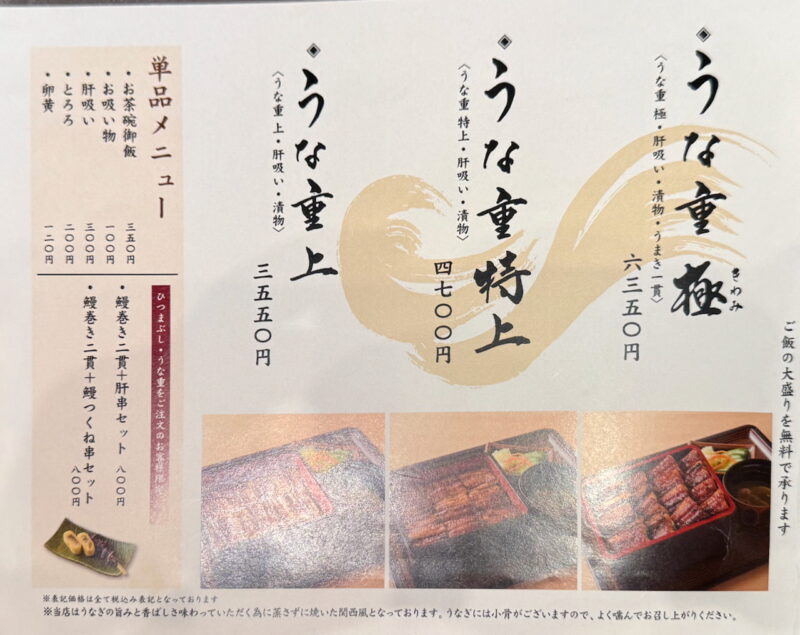 ご飯の大盛りを無料で承ります
うな重 極
きわみ
〈うな重 極・肝吸い・漬物・うまき一貫〉
六三五〇円
うな重 特上
〈うな重 特上・肝吸い・漬物〉
四七〇〇円
うな重 上
〈うな重 上・肝吸い・漬物〉
三五五〇円
単品メニュー
・お茶碗御飯 三五〇円
・お吸い物 一〇〇円
・肝吸い 三〇〇円
・とろろ 二〇〇円
・卵黄 一二〇円
ひつまぶし・うな重をご注文のお客様限定
・鰻巻き二貫＋肝串セット 八〇〇円
・鰻巻き二貫＋鰻つくね串セット 八〇〇円
※表記価格は全て税込み表記となっております
※当店はうなぎの旨みと香ばしさ味わっていただく為に蒸さずに焼いた関西風となっております。うなぎには小骨がございますので、よく噛んでお召し上がりください。